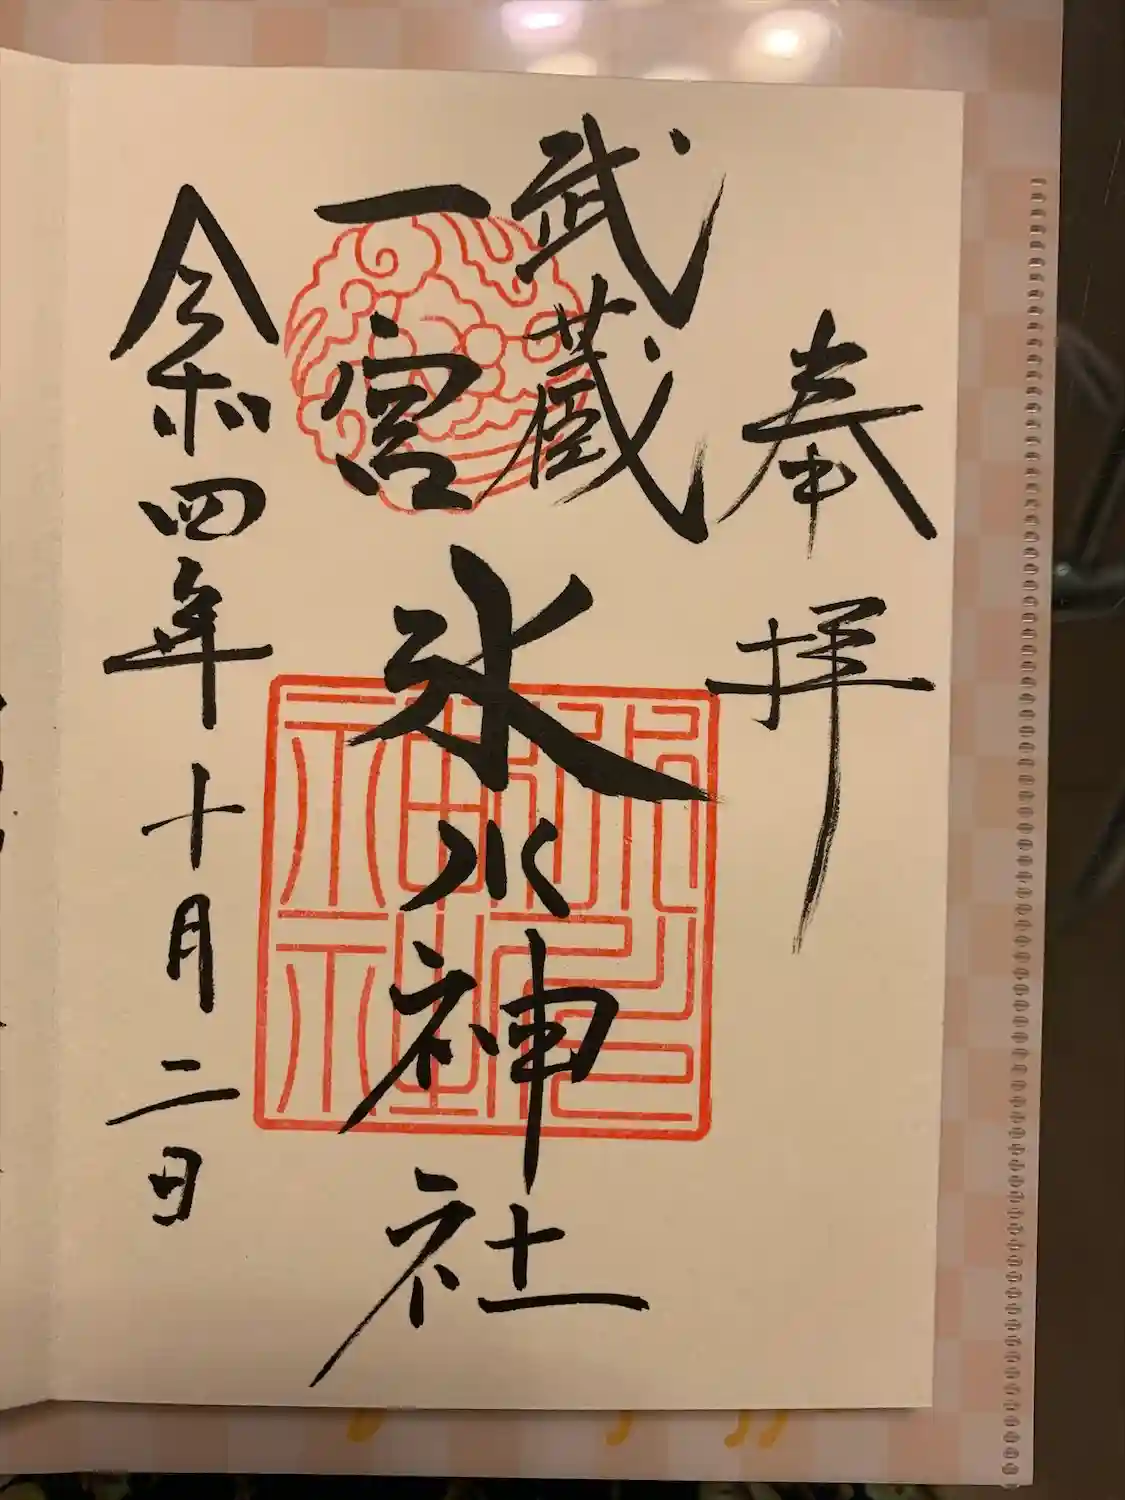 奉拝
武蔵
一宮
氷川神社
令和四年十月二日
氷川
神社